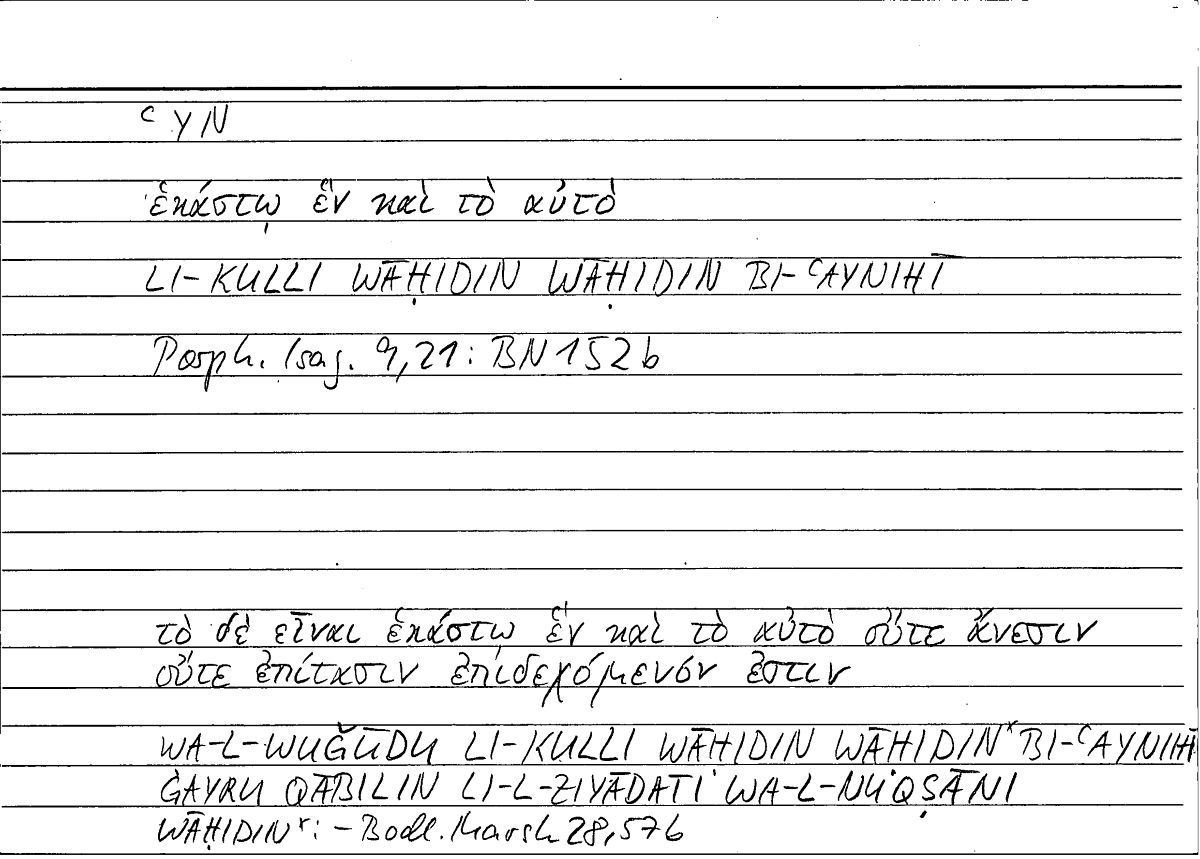 ʿYN
ἑκάστῳ ἓν καὶ τὸ αὐτὸ
LI-KULLI WĀḤIDIN WĀḤIDIN BI-ʿAYNIHĪ
Porph. Isag. 9,21: BN 152b
τὸ δὲ εἶναι ἑκάστῳ ἓν καὶ τὸ αὐτὸ οὔτε ἄνεσιν
οὔτε ἐπίτασιν ἐπιδεχόμενόν ἐστιν
WA-L-WUǦŪDU LI-KULLI WĀḤIDIN WĀḤIDINˣ BI-ʿAYNIHĪ
ĠAYRU QĀBILIN LI-L-ZIYĀDATI WA-L-NUQṢĀNI
WĀḤIDINˣ: – Bodl. Marsh 28,57b